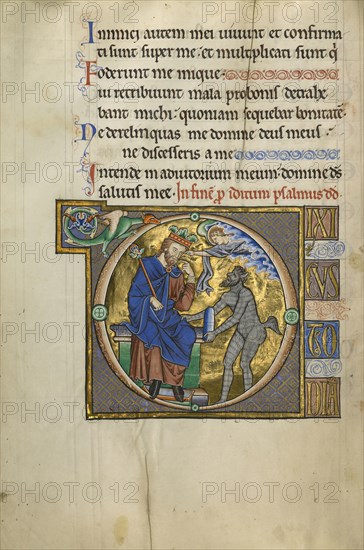 Inimici autem mei uiuunt et confirma
ti sunt super me et multiplicati sunt q
oderunt me inique
ui retribuunt mala pro bonis detrahe
bant michi quoniam sequebar bonitate
Ne derelinquas me domine deus meus
ne discesseris a me
Intende in adiutorium meum domine ds
salutis mee In fine p iditum psalmus dd
D IXI
CUS
TO
DIA
PHOTO 12